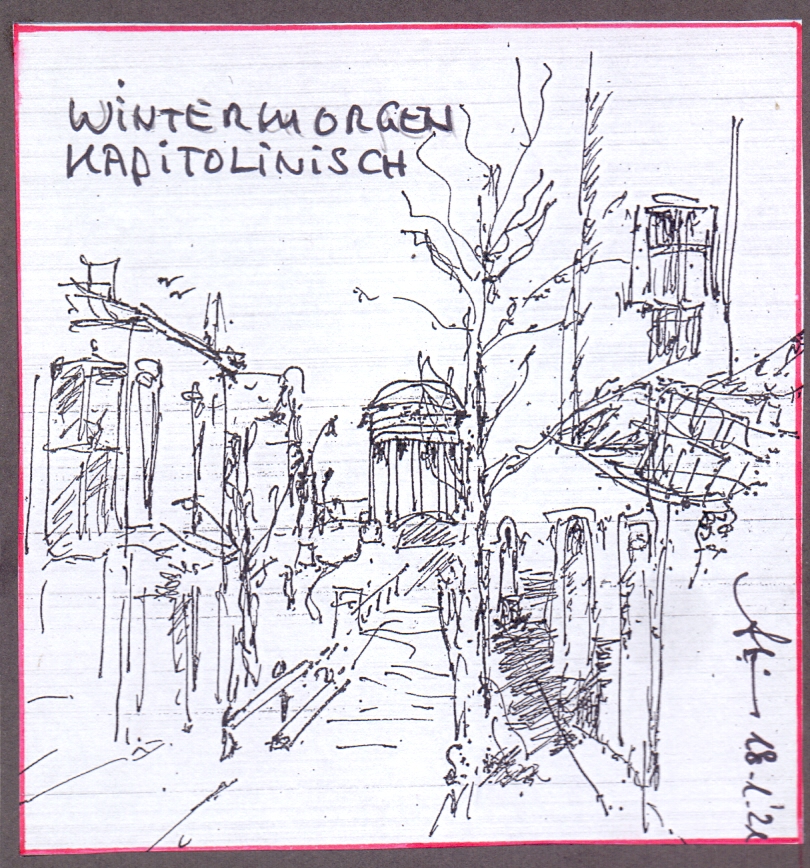 WINTERMORGEN
KAPITOLINISCH
18-1.'21